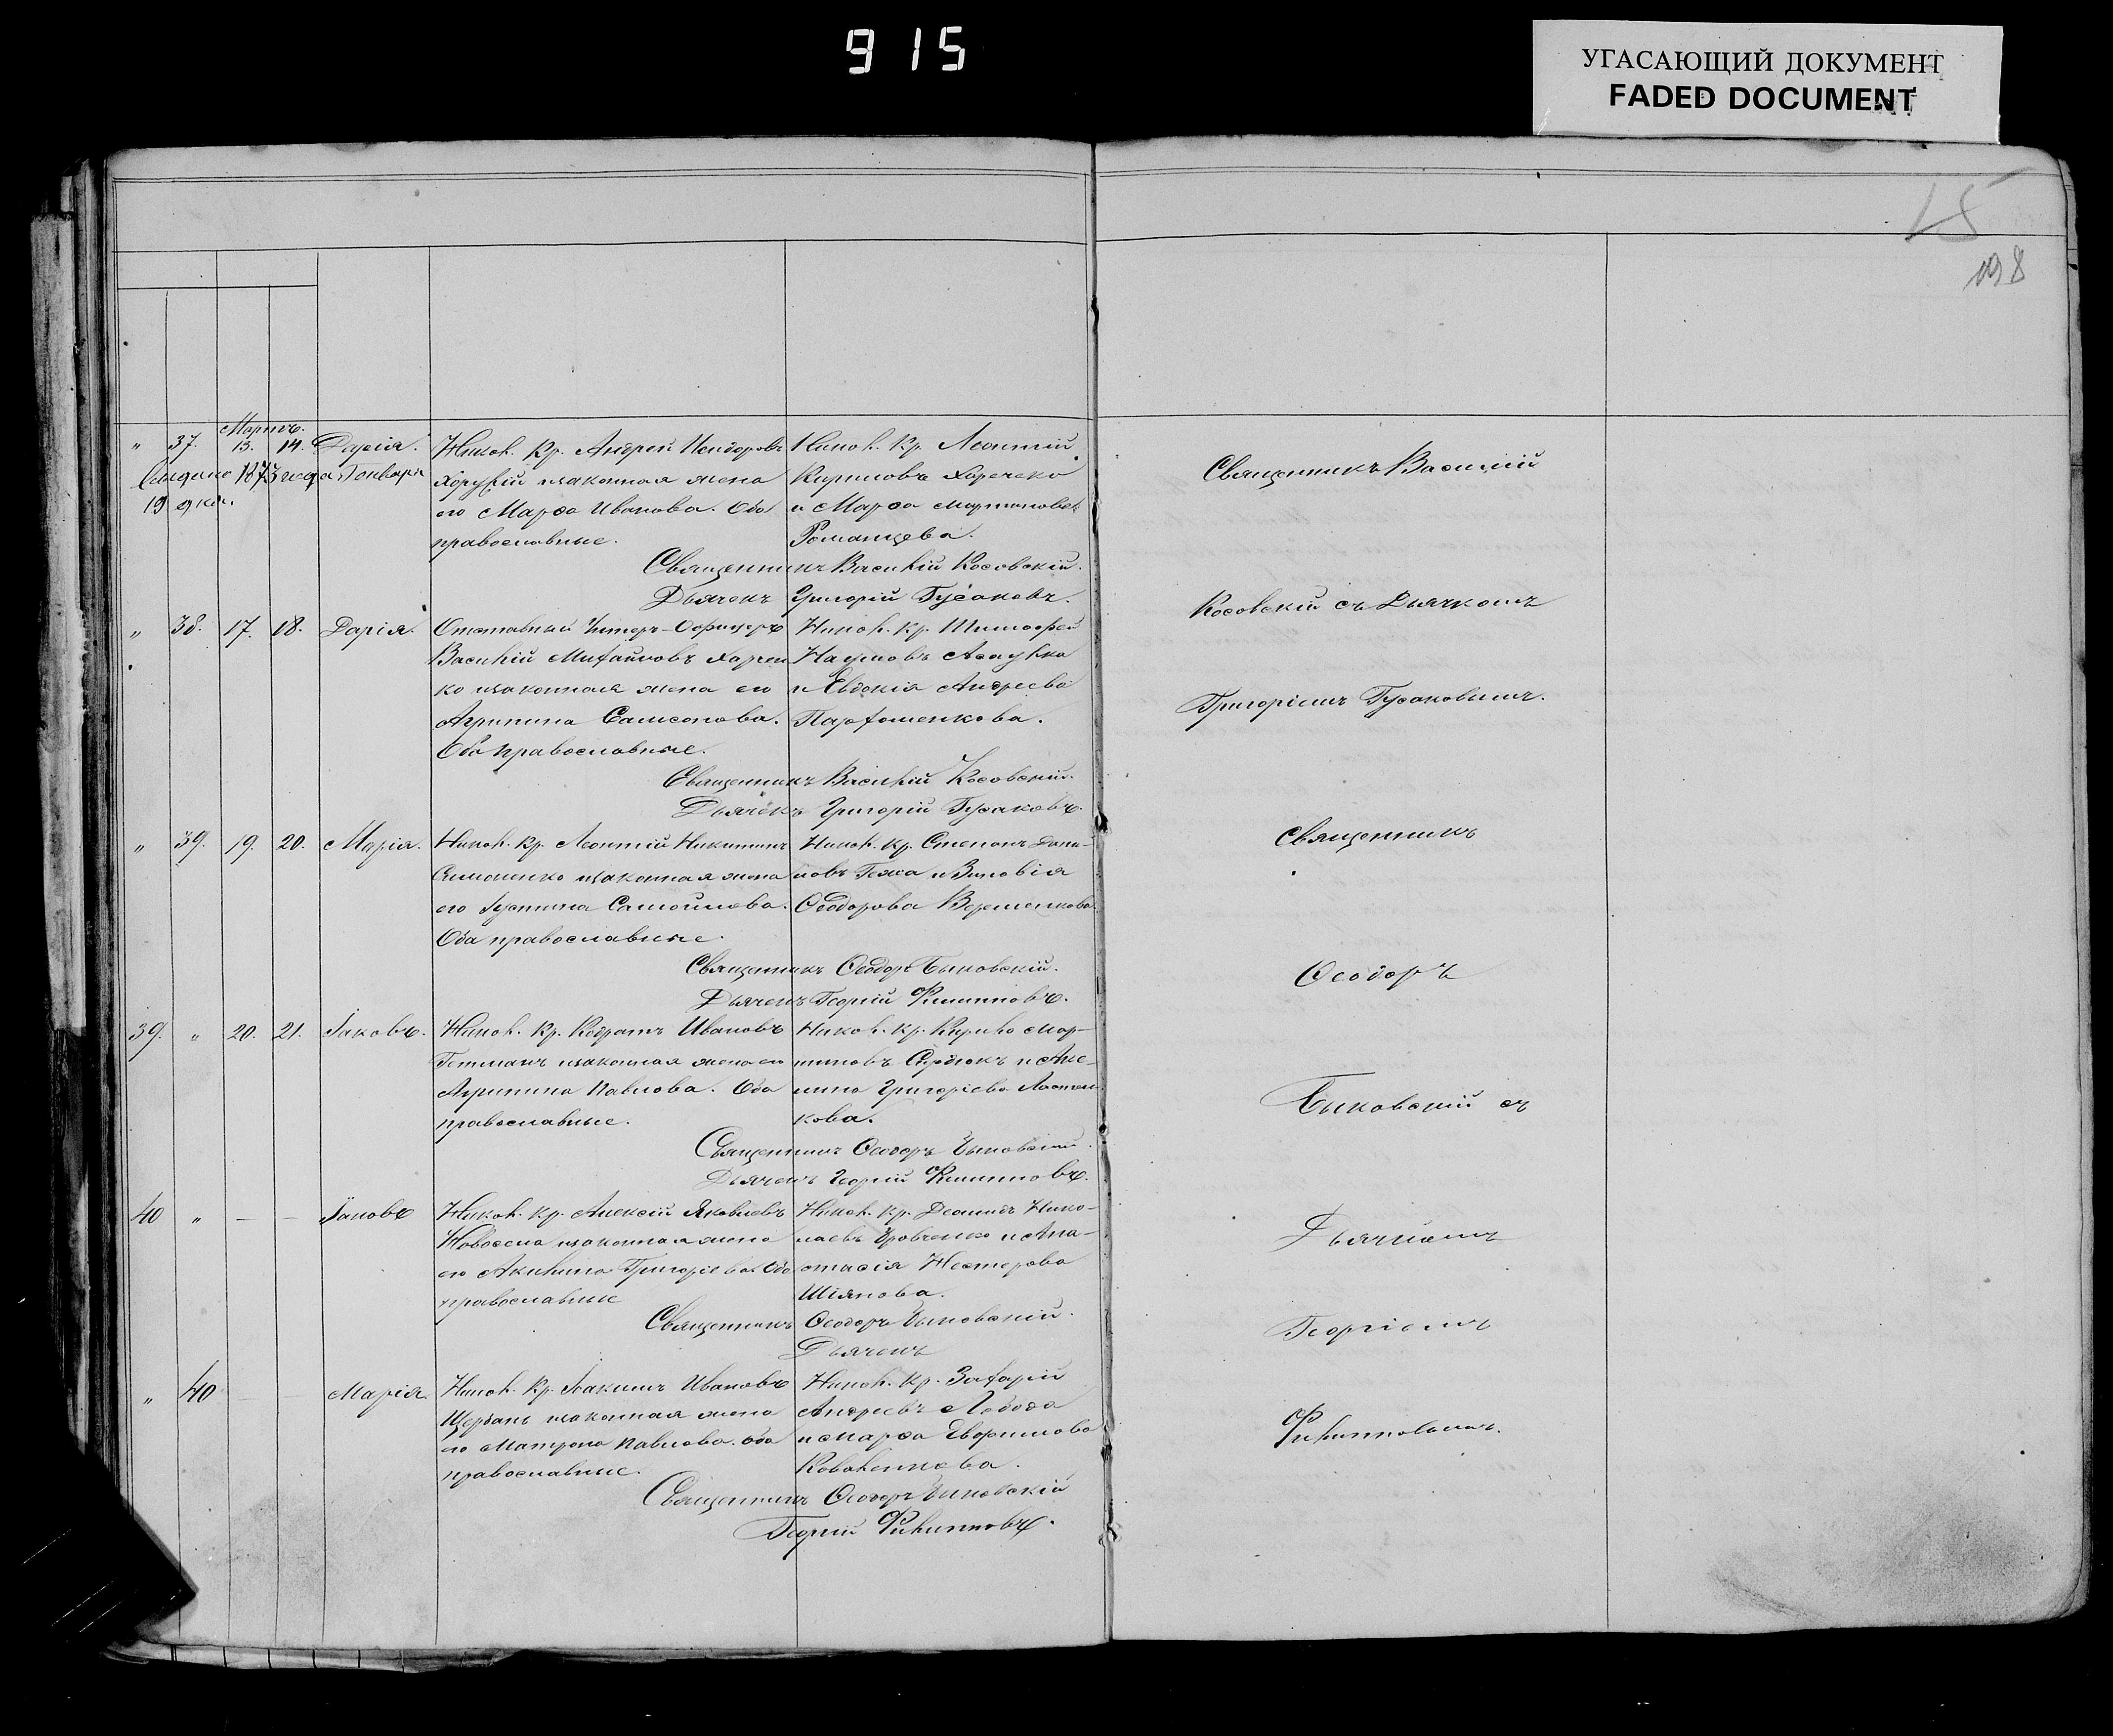 915
УГАСАЮЩИЙ ДОКУМЕНТ
FADED DOCUMENT
15
198
Мартъ.
" 37. 13. 14. Дарія. Никол. Кр. Андрей Исидоровъ Никол. Кр. Леонтій
1873 года Генваря
19 дня. Хорунжій и законная жена Кириловъ Харченко
его Марѳа Иванова. Оба и Марѳа Мартинова
православные. Романцева.
Священникъ Василій Косовскій.
Дьячекъ Григорій Гусаковъ.
" 38. 17. 18. Дарія. Отставный Унтеръ-Офицеръ Никол. Кр. Тимоѳей
Василій Михайловъ Харчен Наумовъ
ко и законная жена его и Евдокія Андреева
Агрипина Самсонова. Парфоменкова.
Оба православные.
Священникъ Василій Косовскій.
Дьячекъ Григорій Гусаковъ.
" 39. 19. 20. Марія. Никол. Кр. Леонтій Никитинъ Никол. Кр. Степанъ Дани-
Симоненко и законная жена ловъ Гежа и Зиновія
его Іустина Самойлова. Ѳеодорова Веременкова.
Оба православные.
Священникъ Ѳеодоръ Быковскій.
Дьячекъ Георгій Филипповъ.
39. " 20. 21. Іаковъ. Никол. Кр. Кодратъ Ивановъ Никол. Кр. Кирило Мар-
Гетманъ и законная жена его тиновъ Сердюкъ и Аке-
Агрипина Павлова. Оба нина Григорієва
православные. кова.
Священникъ Ѳеодоръ Быковскій.
Дьячекъ Георгій Филипповъ.
40 " — — Іаковъ Никол. Кр. Алексій Яковлевъ Никол. Кр. Леонидъ Нико-
и законная жена лаевъ и Ана-
его Акилина Григоріева Оба стасія Нестерова
православные Шіянова.
Священникъ Ѳеодоръ Быковскій.
Дьячекъ
" 40 — — Марія Никол. Кр. Іоакимъ Ивановъ Никол. Кр. Захарій
Щербань и законная жена Андреевъ Лобода
его Матрона Павлова. Оба и Марѳа Евфимова
православные. Коваленкова.
Священникъ Ѳеодоръ Быковскій
Георгій Филипповъ.
Священникъ Василій
Косовскій съ Дьячкомъ
Григоріемъ Гусаковымъ.
Священникъ
Ѳеодоръ
Быковскій съ
Дьячкомъ
Георгіемъ
Филипповымъ.